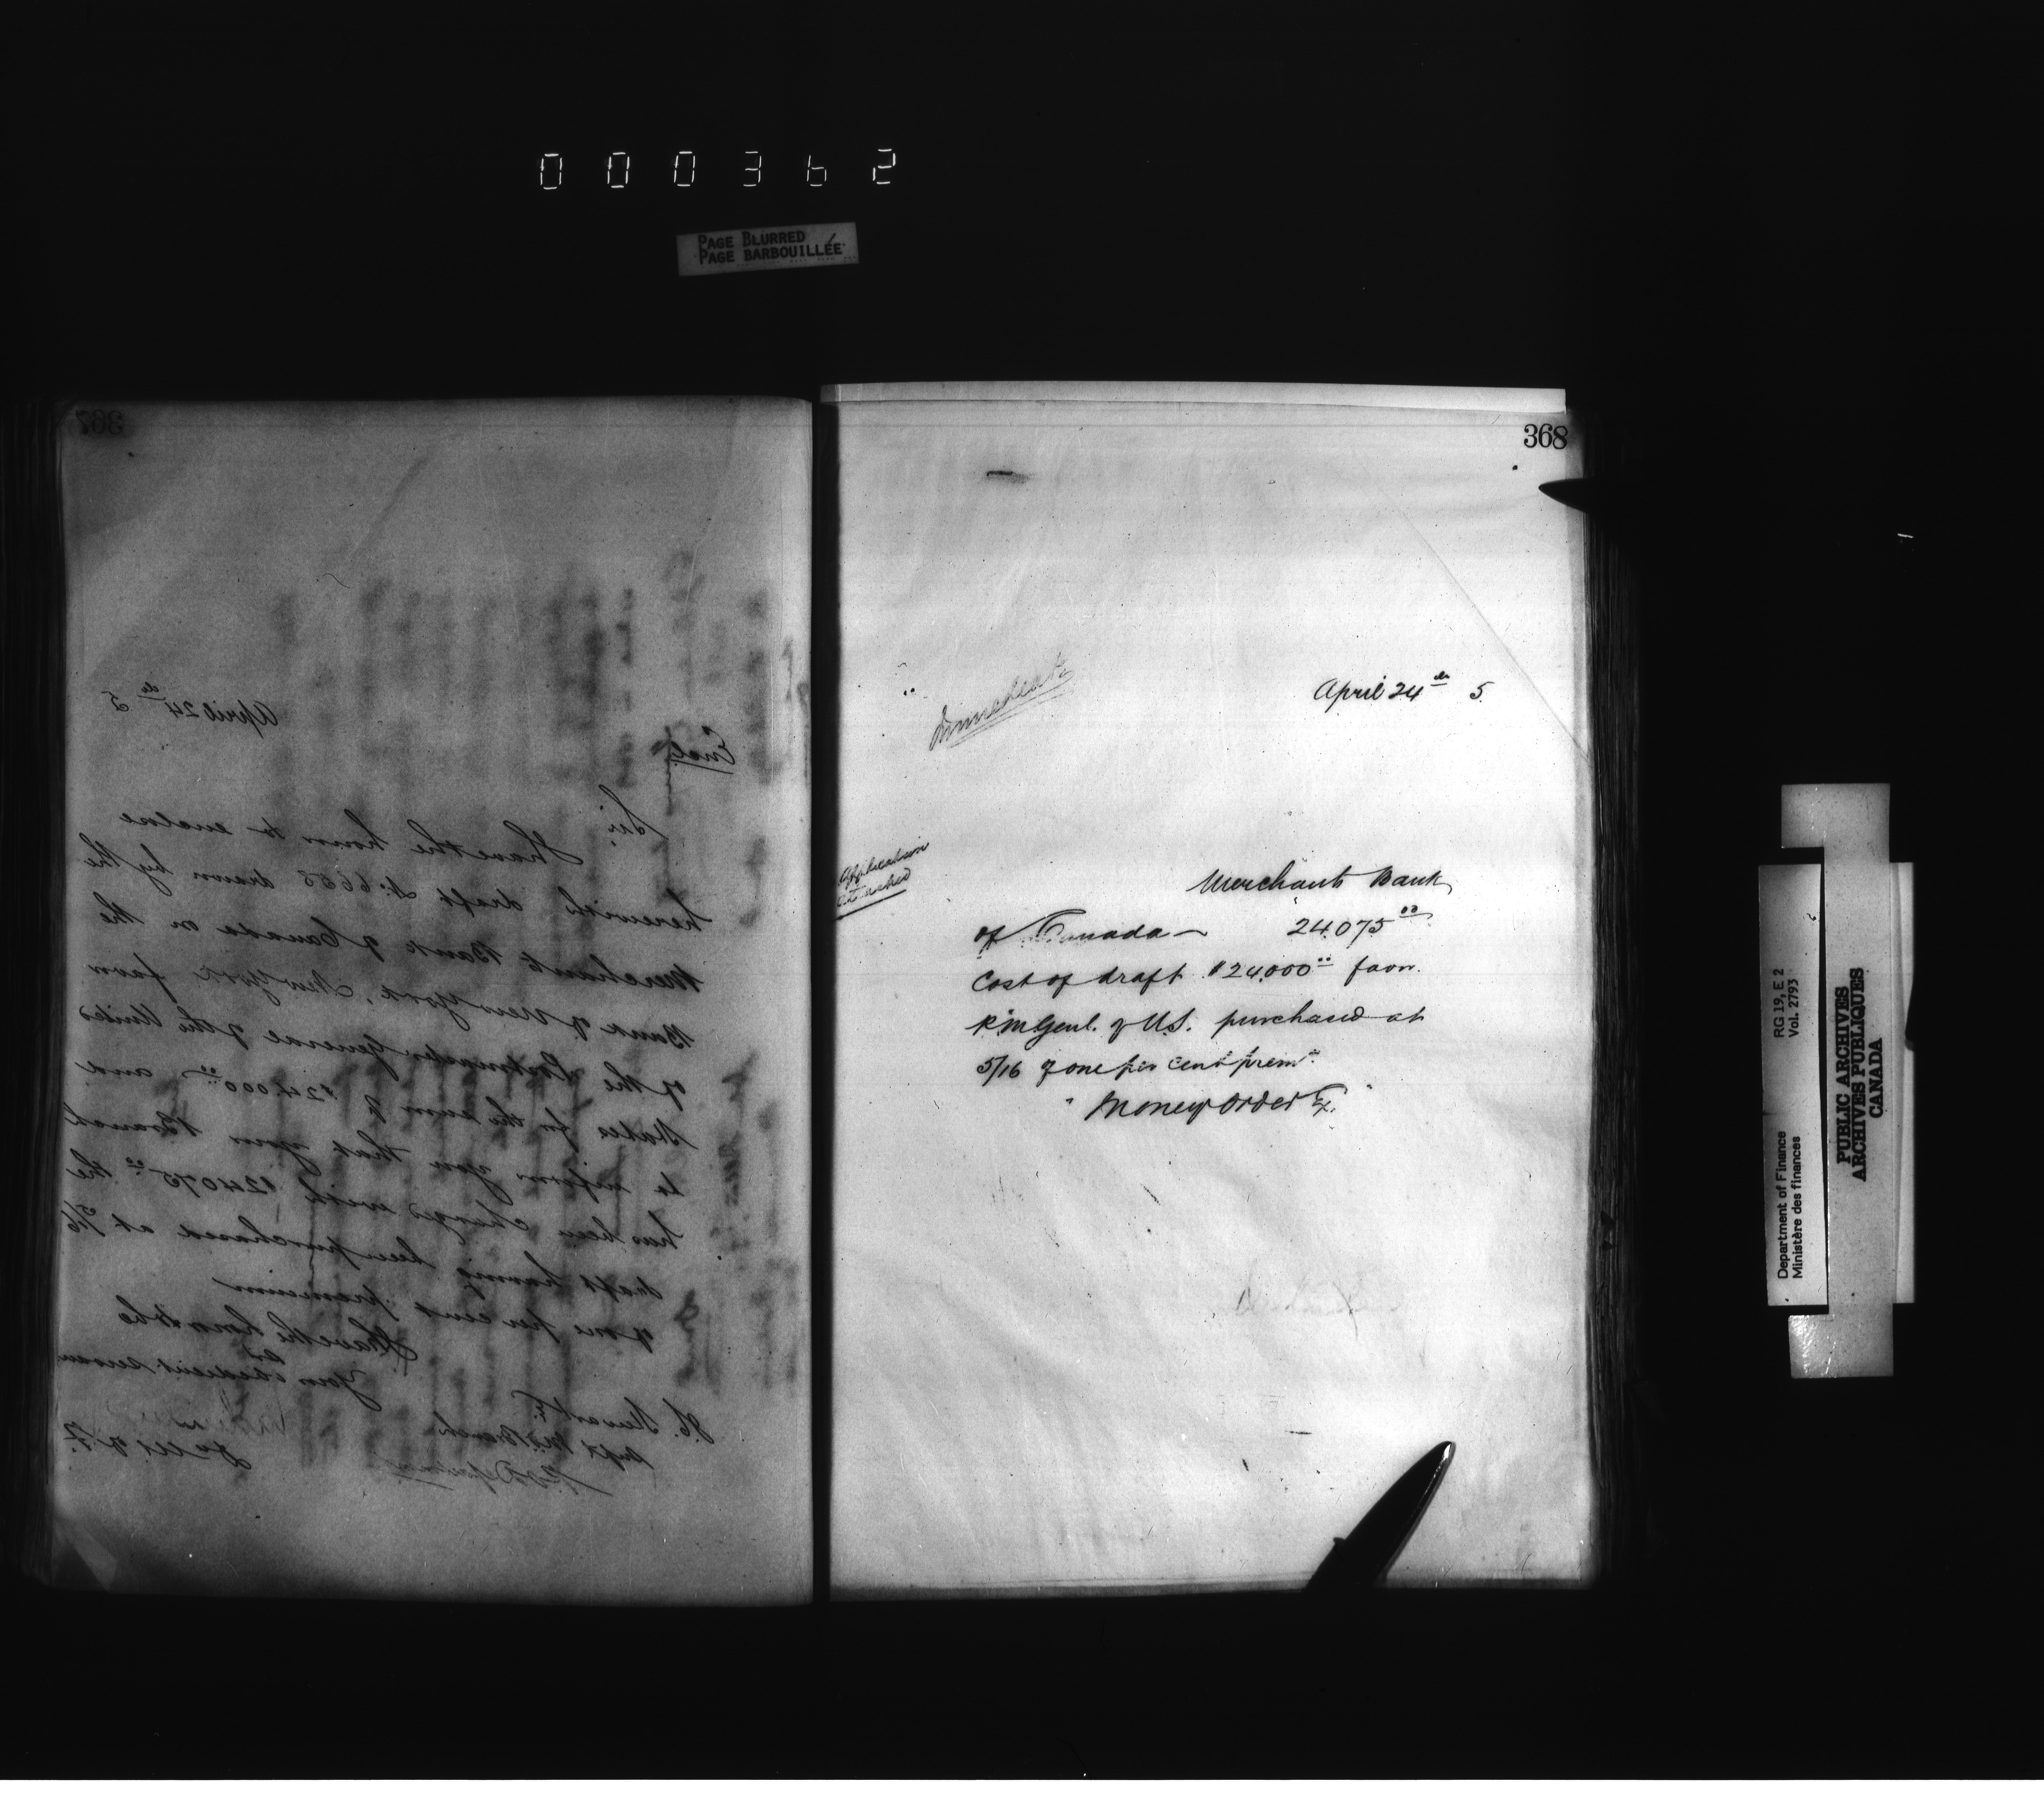 000362
PAGE BLURRED
PAGE BARBOUILLÉE
367
April 24th 5
Encl.
Sir,
I have the honor to enclose
herewith draft No. 6658 drawn by the
Merchants Bank of Canada on the
Bank of New York, New York favor
of the Postmaster General of the United
States for the sum of $24.000.00 and
to inform you that your Branch
has been charged with $24075.00 the
draft having been purchased at 5/16
of one per cent premium
I have the honor to be
Sir
Your obedient servan
J.C. Stewart Esq.
Supt M.O. Branch
P.O. Department
D. M. of F.
368
Immediate
April 24th 5
Application
attached
Merchants Bank
of Canada — 24.075.00
Cost of draft $24.000.00 favor
P.M. Genl. of U.S. purchased at
5/16 of one per cent prem.
"Money Order %."
Department of Finance RG 19, E 2
Ministère des finances Vol. 2793
PUBLIC ARCHIVES
ARCHIVES PUBLIQUES
CANADA